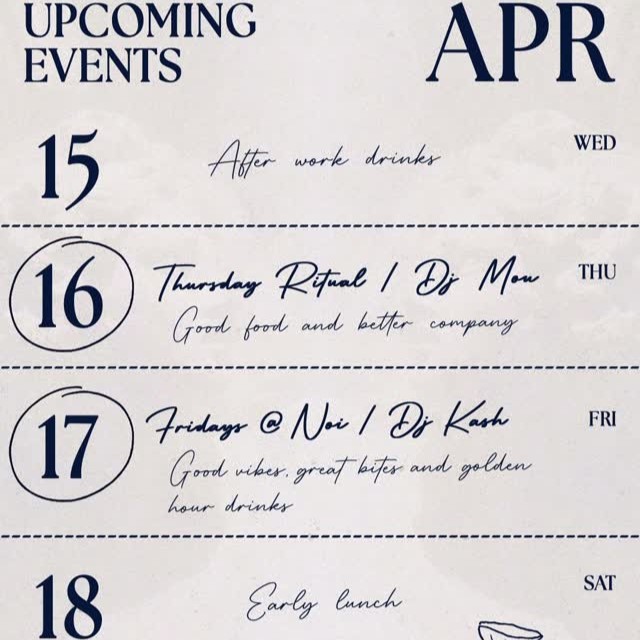 UPCOMING
EVENTS
APR
15
After work drinks
WED
16
Thursday Ritual / Dj Mou
THU
Good food and better company
17
Fridays @ Noi / Dj Kash
FRI
Good vibes, great bites and golden
hour drinks
18
Early lunch
SAT